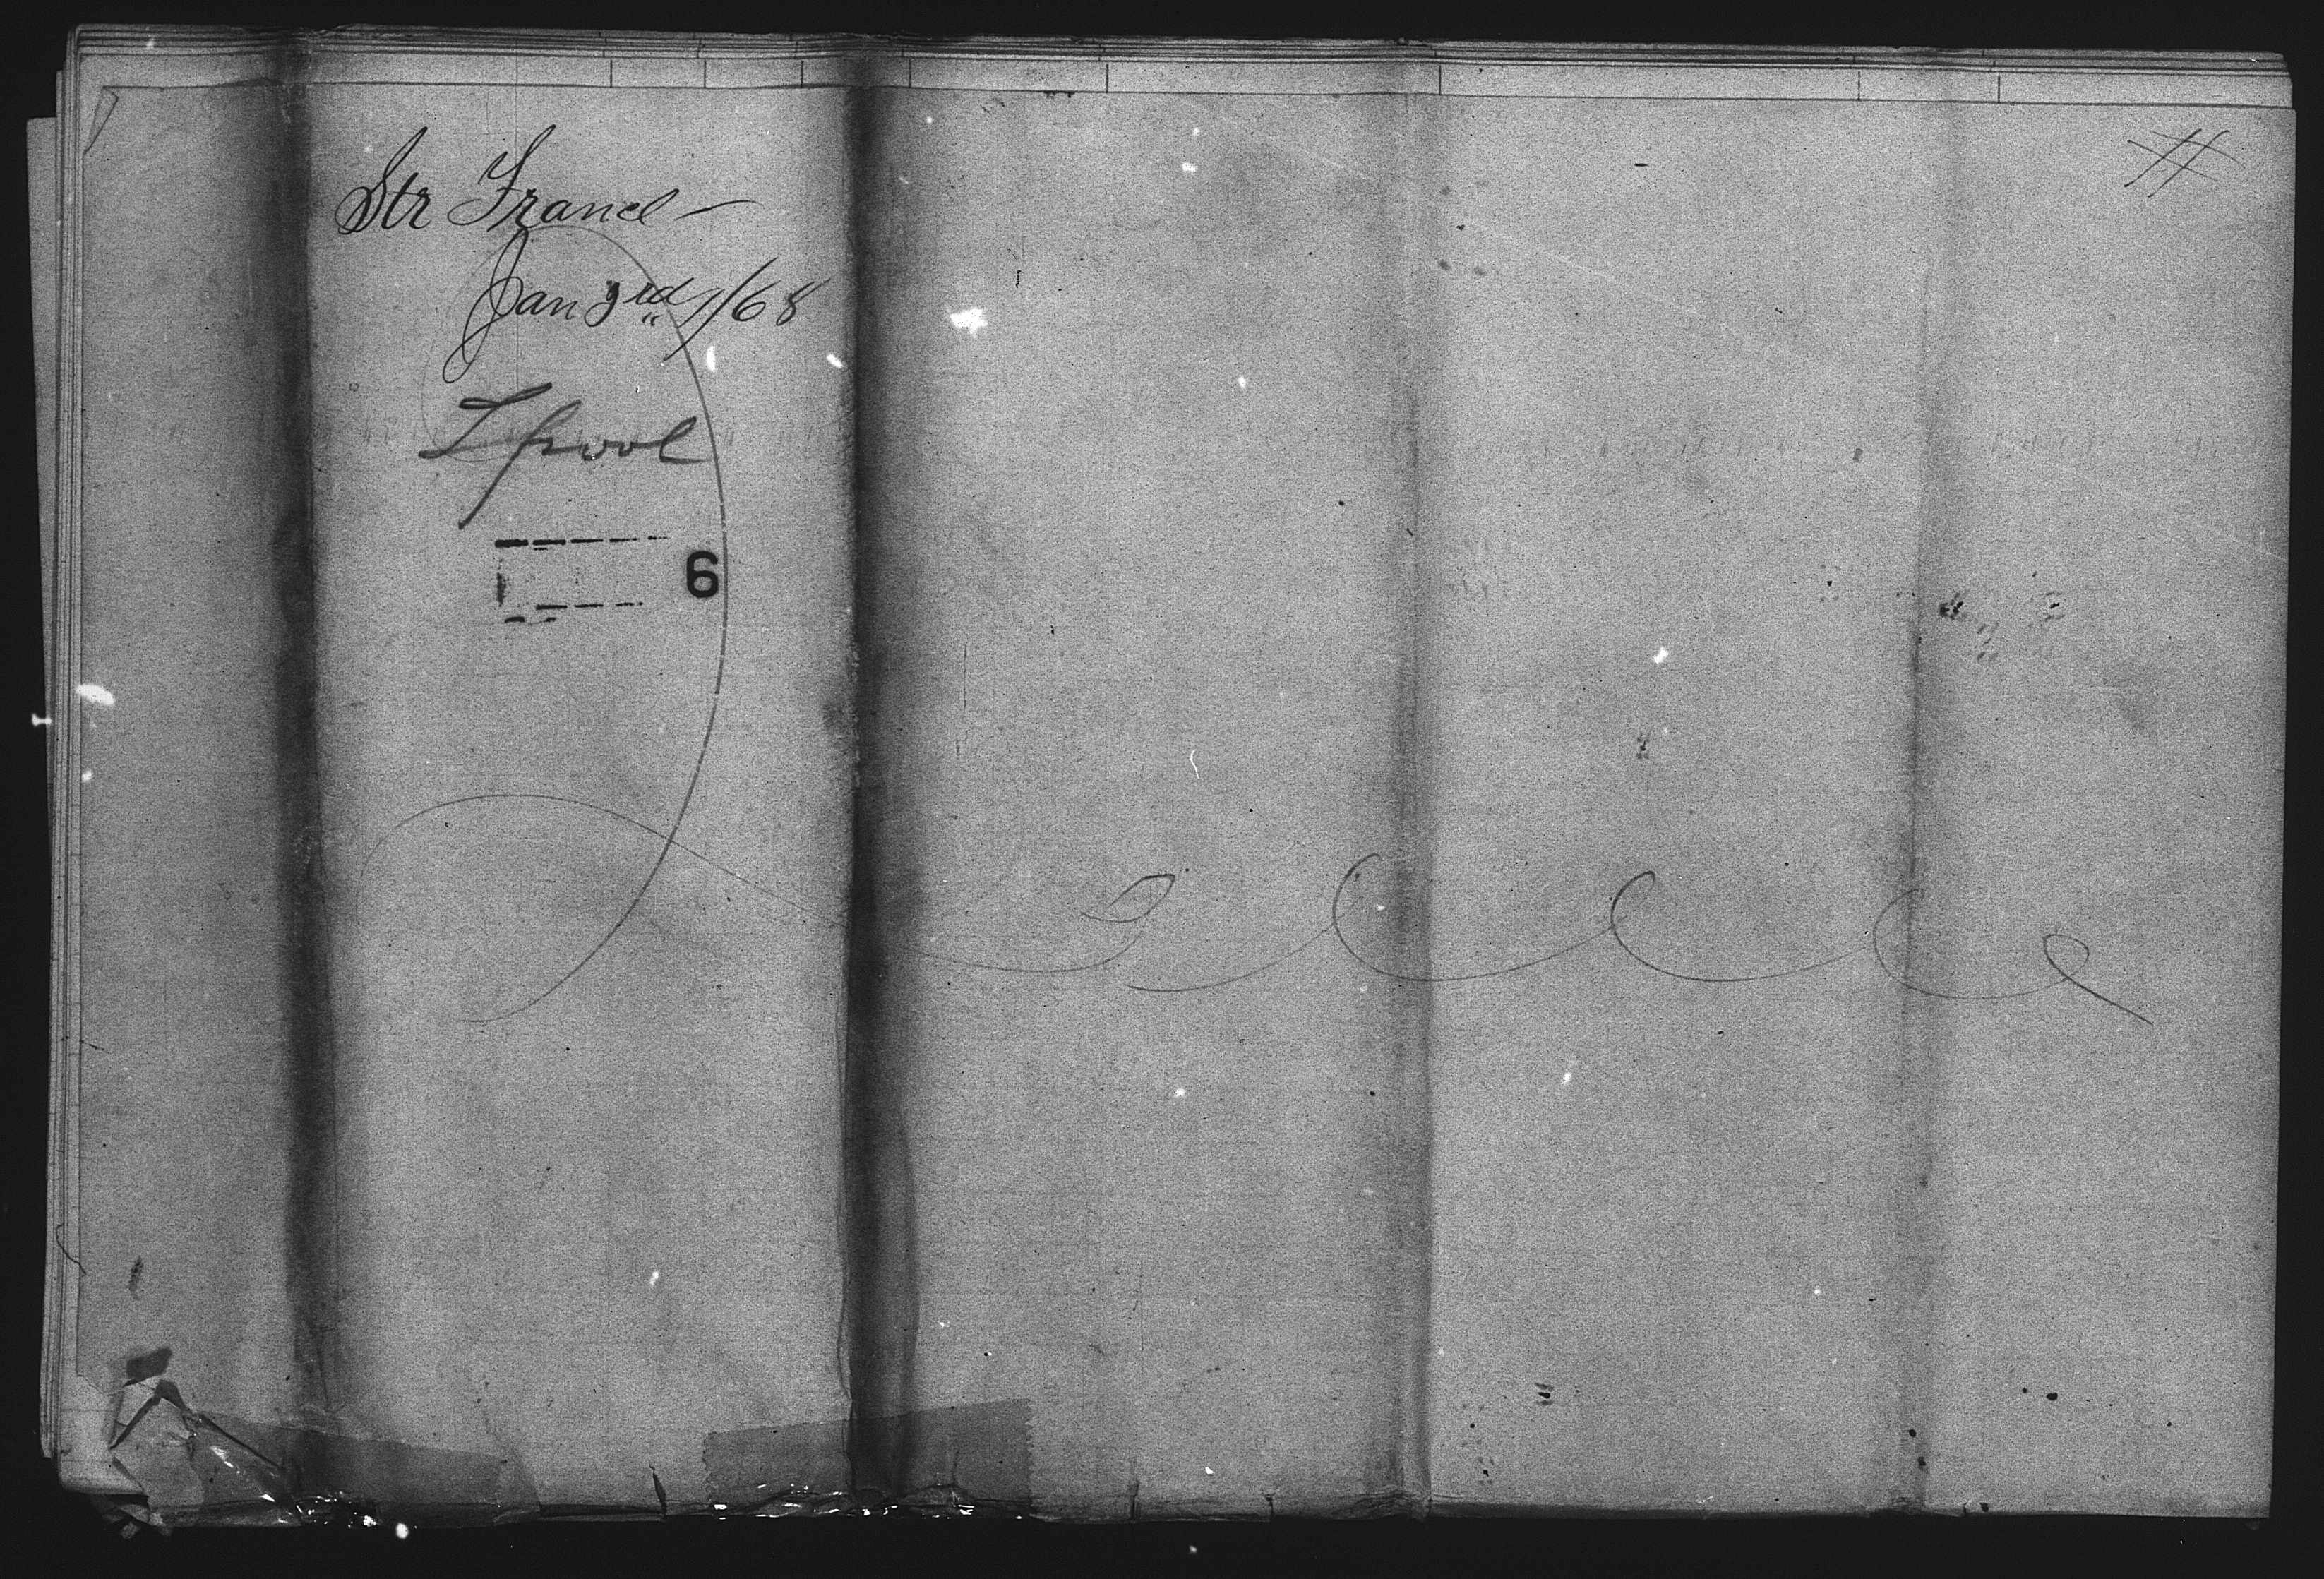 Str France —
Jan 3rd /68
Lpool
6
#